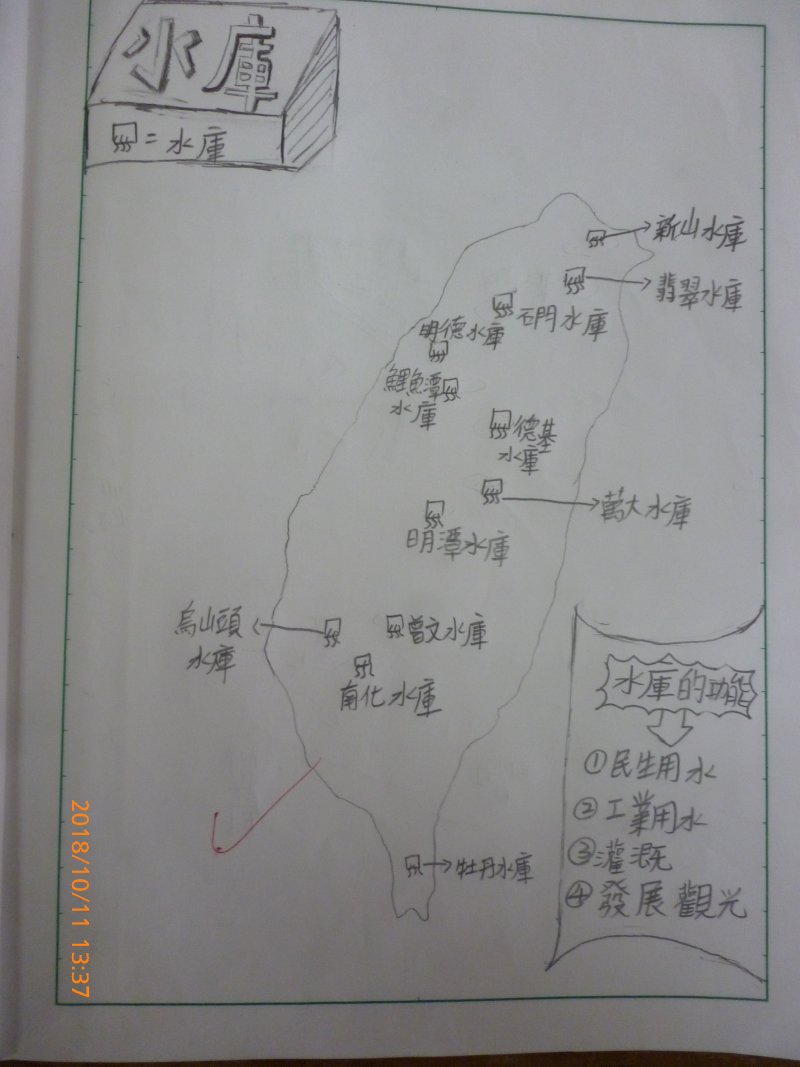 水庫
=水庫
新山水庫
翡翠水庫
石門水庫
明德水庫
鯉魚潭
水庫
德基
水庫
萬大水庫
明潭水庫
烏山頭
水庫
曾文水庫
南化水庫
牡丹水庫
水庫的功能
①民生用水
②工業用水
③灌溉
④發展觀光
2018/10/11 13:37